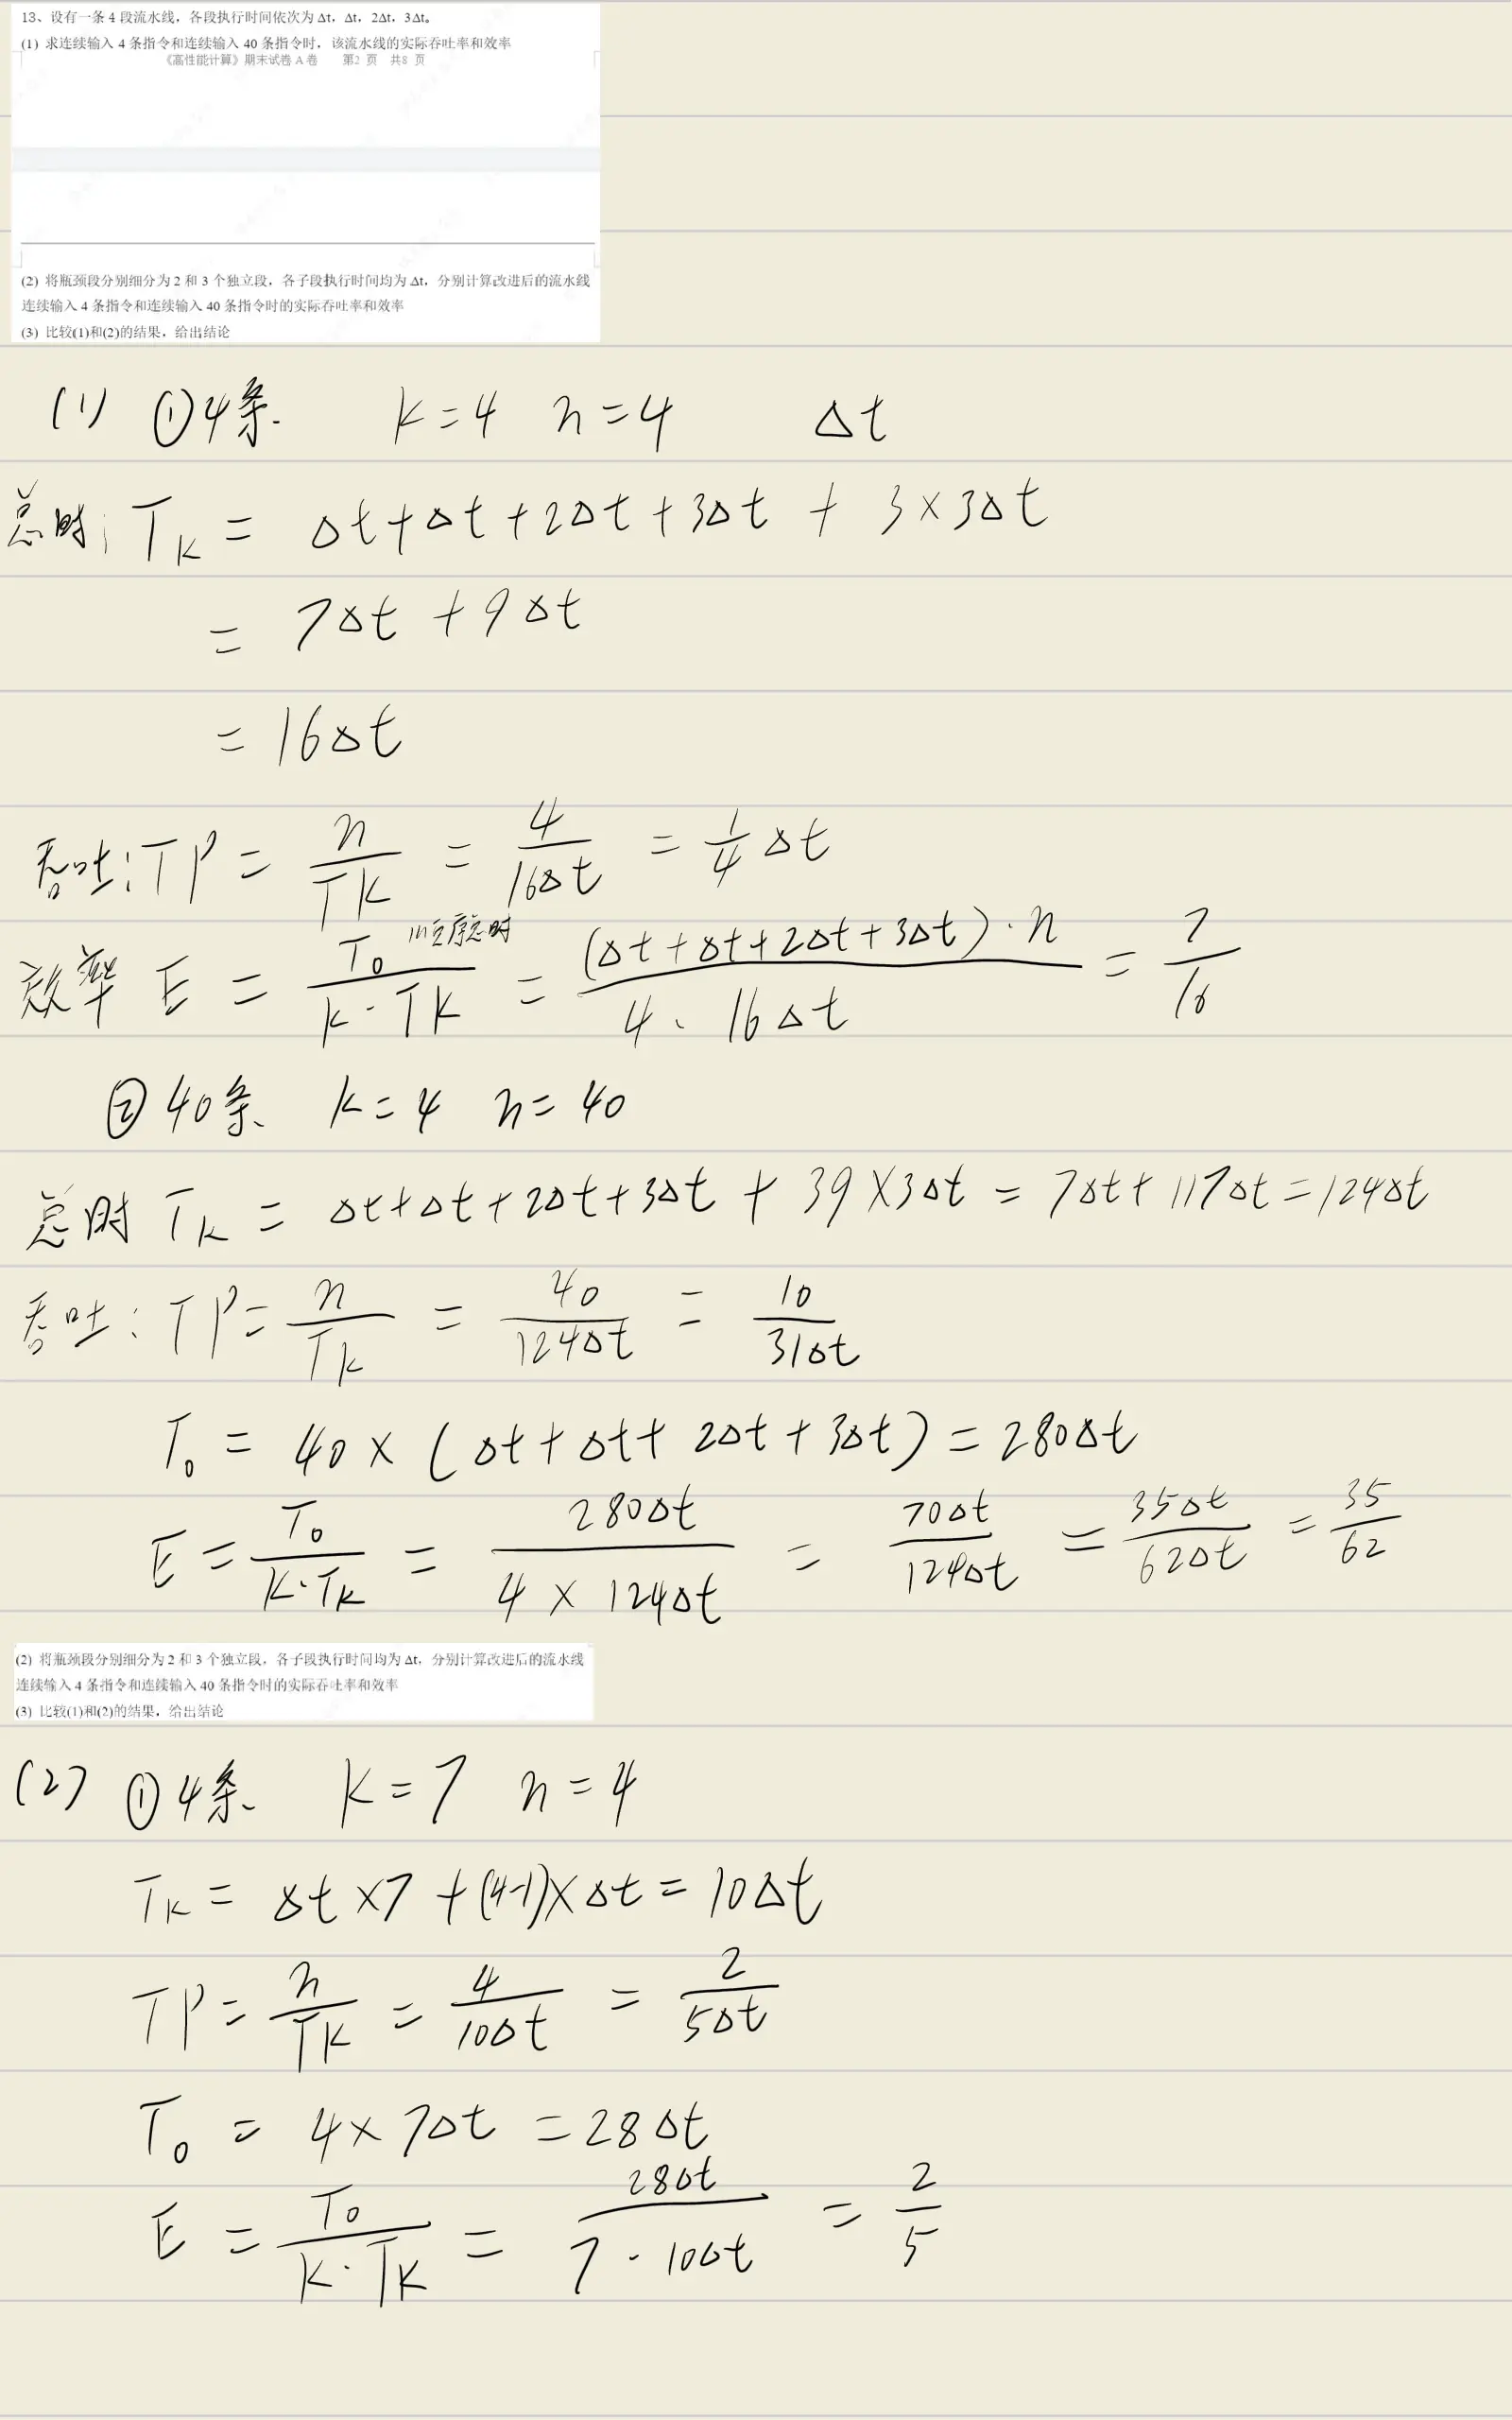 13、设有一条 4 段流水线，各段执行时间依次为 Δt，Δt，2Δt，3Δt。
(1) 求连续输入 4 条指令和连续输入 40 条指令时，该流水线的实际吞吐率和效率
《高性能计算》期末试卷 A 卷 第2 页 共8 页
(2) 将瓶颈段分别细分为 2 和 3 个独立段，各子段执行时间均为 Δt，分别计算改进后的流水线
连续输入 4 条指令和连续输入 40 条指令时的实际吞吐率和效率
(3) 比较(1)和(2)的结果，给出结论
(1) ①4条 k=4 n=4 Δt
总时: Tk = Δt+Δt+2Δt+3Δt + 3×3Δt
= 7Δt+9Δt
= 16Δt
吞吐: TP = n/Tk = 4/16Δt = 1/4 Δt
效率 E = T0 川页序总时/k·Tk = (Δt+Δt+2Δt+3Δt)·n/4·16Δt = 7/16
②40条 k=4 n=40
总时 Tk = Δt+Δt+2Δt+3Δt + 39×3Δt = 7Δt+117Δt=124Δt
吞吐: TP= n/Tk = 40/124Δt = 10/31Δt
T0 = 40×(Δt+Δt+2Δt+3Δt)=280Δt
E = T0/k·Tk = 280Δt/4×124Δt = 70Δt/124Δt = 35Δt/62Δt = 35/62
(2) 将瓶颈段分别细分为 2 和 3 个独立段，各子段执行时间均为 Δt，分别计算改进后的流水线
连续输入 4 条指令和连续输入 40 条指令时的实际吞吐率和效率
(3) 比较(1)和(2)的结果，给出结论
(2) ①4条 k=7 n=4
Tk = Δt×7+(4-1)×Δt=10Δt
TP = n/Tk = 4/10Δt = 2/5Δt
T0 = 4×7Δt =28Δt
E = T0/k·Tk = 28Δt/7·10Δt = 2/5